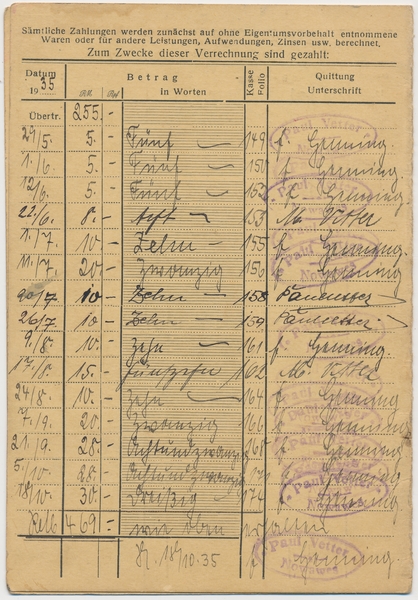 Sämtliche Zahlungen werden zunächst auf ohne Eigentumsvorbehalt entnommene
Waren oder für andere Leistungen, Aufwendungen, Zinsen usw. berechnet.
Zum Zwecke dieser Verrechnung sind gezahlt:
Datum Betrag Kasse Quittung
1935 RM. Rpf in Worten Folio Unterschrift
Übertr. 255.-
29/5. 5.- Fünf 149 f. Henning.
1./6. 5.- Fünf 150 f. Henning.
12/6. 5.- Fünf f. Henning.
22./6. 8.- Acht 153 M. Vetter
1./7. 10.- Zehn 155 f. Henning.
11./7. 20.- Zwanzig 156 f. Henning
20/7 10.- Zehn 158
26/7 10.- Zehn 159
9./8. 10.- Zehn 161 f. Henning.
17./8. 15.- fünfzehn 162 M. Vetter
24/8 10.- Zehn 164 f. Henning
7./9. 20.- Zwanzig 166 f. Henning
21./9. 28.- Achtundzwanzig 168 f. Henning.
5./10. 28.- Achtundzwanzig f. Henning
18/10. 30.- Dreißig 174 f. Henning.
469.- wie oben erhalten
18/10.35 f. Henning.
Paul Vetter
Nowawes